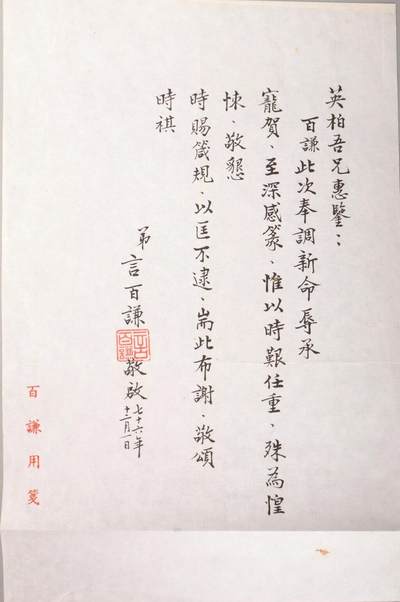 英柏吾兄惠鑒：
百謙此次奉調新命辱承
寵賀、至深感篆、惟以時艱任重、殊為惶
悚、敬懇
時賜箴規、以匡不逮、耑此布謝、敬頌
時祺
弟 言百謙 言百謙 敬啟 七十六年十二月一日
百謙用箋